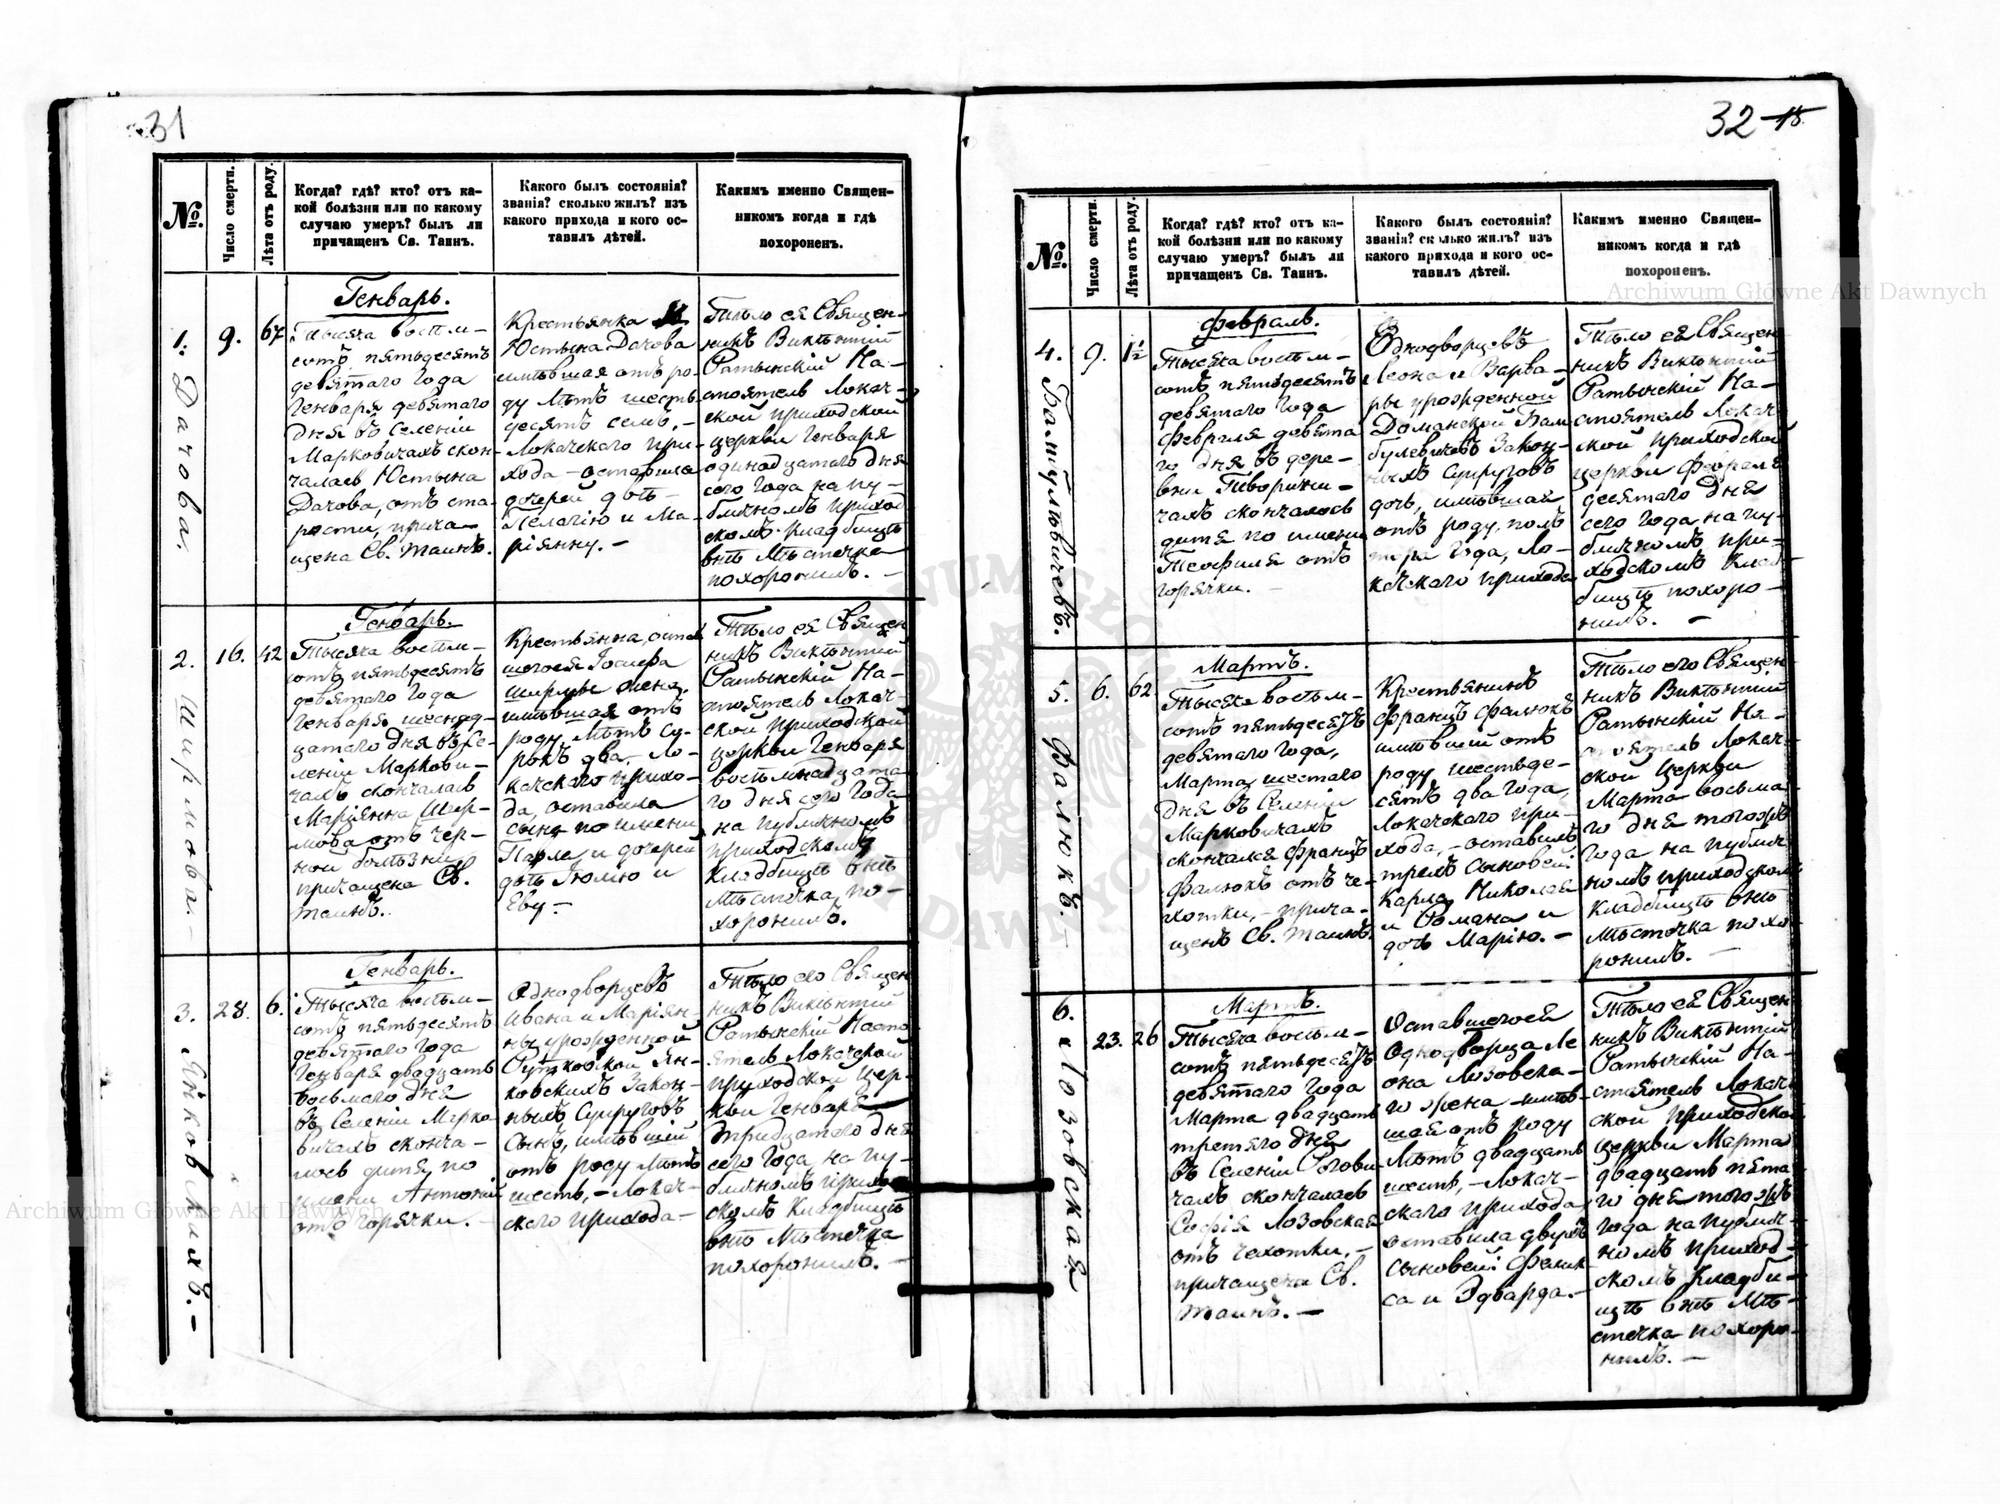 31
№.
Число смерти.
Лѣта отъ роду.
Когда? гдѣ? кто? отъ ка-
кой болѣзни или по какому
случаю умеръ? былъ ли
причащенъ Св. Таинъ.
Какого былъ состоянія?
званія? сколько жилъ? изъ
какого прихода и кого ос-
тавилъ дѣтей.
Какимъ именно Священ-
никомъ когда и гдѣ
похороненъ.
1.
Дачова.
9.
67
Генварь.
Тысяча восемь-
сотъ пятьдесятъ
девятаго Года
Генваря девятаго
дня въ Селеніи
Марковичахъ скон-
чалась Юстына
Дачова, отъ ста-
рости, прича-
щена Св. Таинъ.
Крестьянка
Юстына Дачова
имѣвшая отъ ро-
ду лѣтъ шесть
десятъ семь, -
Локачскаго при-
хода - оставила
дочерей двѣ -
Пелагію и Ма-
ріянну. -
Тѣло ея Священ-
никъ Викѣнтій
Ратынскій На-
стоятель Локач-
ской приходской
церкви Генваря
одинадцатаго дня
сего Года на пу-
бличномъ приход
скомъ кладбищѣ
внѣ Мѣстечка
похоронилъ. -
2.
Ширмова. -
16.
42
Генварь.
Тысяча восемь-
сотъ пятьдесятъ
девятаго Года
Генваря шеснад-
цатаго дня въ Се-
леніи Маркови-
чахъ скончалась
Маріянна Шир-
мова отъ чер-
ной болѣзни
причащена Св.
Таинъ.
Крестьянна, остав
шогося Іосифа
Ширмы жена,
имѣвшая отъ
роду лѣтъ со-
рокъ два, Ло-
качскаго прихо-
да, оставила
сына по имени
Павла и дочерей
двѣ Юлію и
Еву -
Тѣло ея Священ
никъ Викѣнтій
Ратынскій На-
стоятель Локач-
ской приходской
церкви Генваря
восемнадцата-
го дня сего Года
на публичномъ
приходскомъ
Кладбищѣ внѣ
Мѣстечка по-
хоронилъ.
3.
Янковскихъ. -
28.
6.
Генварь.
Тысяча восемь-
сотъ пятьдесятъ
девятаго Года
Генваря двадцать
восьмаго дня
въ Селеніи Марко
вичахъ сконча-
лось дитя, по
имени Антоній
отъ горячки. -
Однодворцевъ
Ивана и Маріян-
ны урожденной
Рутковской Ян-
ковскихъ Закон-
ныхъ Супруговъ
Сынъ, имѣвшій
отъ роду лѣтъ
шесть, - Локач-
скаго прихода -
Тѣло его Священ
никъ Викѣнтій
Ратынскій Насто-
ятель Локачской
приходской цер-
кви Генваря
тридцатаго дня
сего Года, на пу-
бличномъ приход
скомъ Кладбищѣ
внѣ Мѣстечка
похоронилъ. -
32 15
№.
Число смерти.
Лѣта отъ роду.
Когда? гдѣ? кто? отъ ка-
кой болѣзни или по какому
случаю умеръ? былъ ли
причащенъ Св. Таинъ.
Какого былъ состоянія?
званія? сколько жилъ? изъ
какого прихода и кого ос-
тавилъ дѣтей.
Какимъ именно Священ-
никомъ когда и гдѣ
похороненъ.
4.
9.
1½
Февраль.
Тысяча восемь-
сотъ пятьдесятъ
девятаго Года
Февраля девята
го дня въ дере-
вни
чахъ скончалось
дитя по имени
Теофиля отъ
горячки. -
Однодворцевъ
Леона и Варва-
ры урожденной
Доманской Бам
булевичевъ Закон-
ныхъ Супруговъ
дочь, имѣвшая
отъ роду, полъ
тора Года, Ло-
качскаго прихода
Тѣло ея Священ
никъ Викѣнтій
Ратынскій На-
стоятель Локач
ской приходской
церкви Февраля
десятаго дня
сего Года, на пу-
бличномъ при-
ходскомъ Клад-
бищѣ похоро-
нилъ. -
5.
Фалюкъ. -
6.
62
Мартъ.
Тысяча восемь-
сотъ пятьдесятъ
девятаго Года,
Марта шестаго
дня въ Селеніи
Марковичахъ
скончался Францъ
Фалюкъ отъ че-
хотки, - прича-
щенъ Св. Таинъ.
Крестьянинъ
Францъ Фалюкъ
имѣвшій отъ
роду шестьде-
сятъ два Года,
Локачскаго при-
хода, - оставилъ
трехъ Сыновей
Карла, Николая
и Романа и
дочь Марію. -
Тѣло его Священ-
никъ Викѣнтій
Ратынскій На-
стоятель Локач-
ской Церкви
Марта восьма-
го дня тогожъ
Года на публич-
номъ приходскомъ
Кладбищѣ внѣ
Мѣстечка похо-
ронилъ. -
6.
Лозовская
23.
26
Мартъ.
Тысяча восемь-
сотъ пятьдесятъ
девятаго Года
Марта двадцать
третяго дня
въ Селеніи Рогови-
чахъ скончалась
Софія Лозовская
отъ чехотки, -
причащена Св.
Таинъ. -
Оставшагося
Однодворца Ле
она Лозовска-
го жена - имѣв-
шая отъ роду
лѣтъ двадцать
шесть, - Локач-
скаго прихода,
оставила двухъ
сыновей: Фелик
са и Эдварда. -
Тѣло ея Священ
никъ Викѣнтій
Ратынскій На-
стоятель Локач
ской приходской
церкви Марта
двадцать пята-
го дня тогожъ
Года на публич-
номъ приход-
скомъ Кладби-
щѣ внѣ Мѣ-
стечка похоро-
нилъ. -
Archiwum Główne Akt Dawnych
Archiwum Główne Akt Dawnych